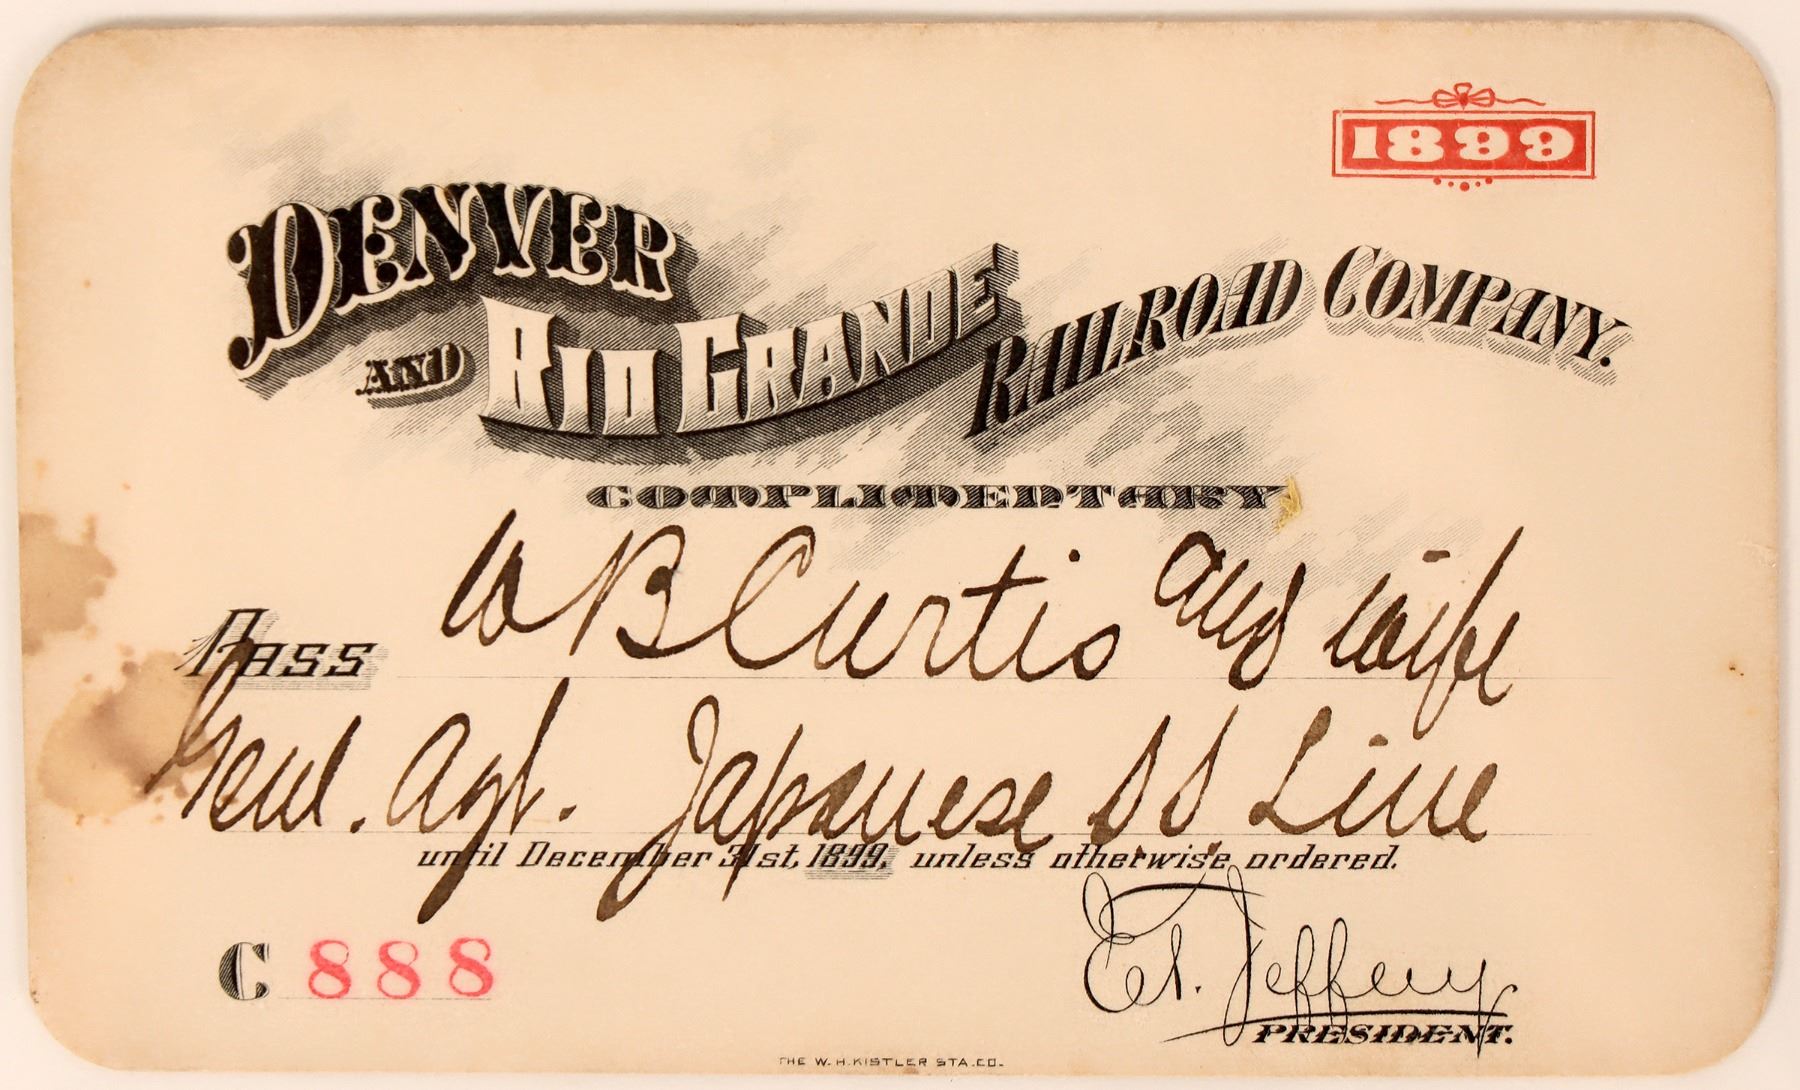 1899
DENVER
AND RIO GRANDE RAILROAD COMPANY.
COMPLIMENTARY
Pass W B Curtis and wife
Genl. Agt. Japanese SS Line
until December 31st, 1899, unless otherwise ordered.
C 888
E.T. Jeffery
PRESIDENT.
THE W. H. KISTLER STA. CO.